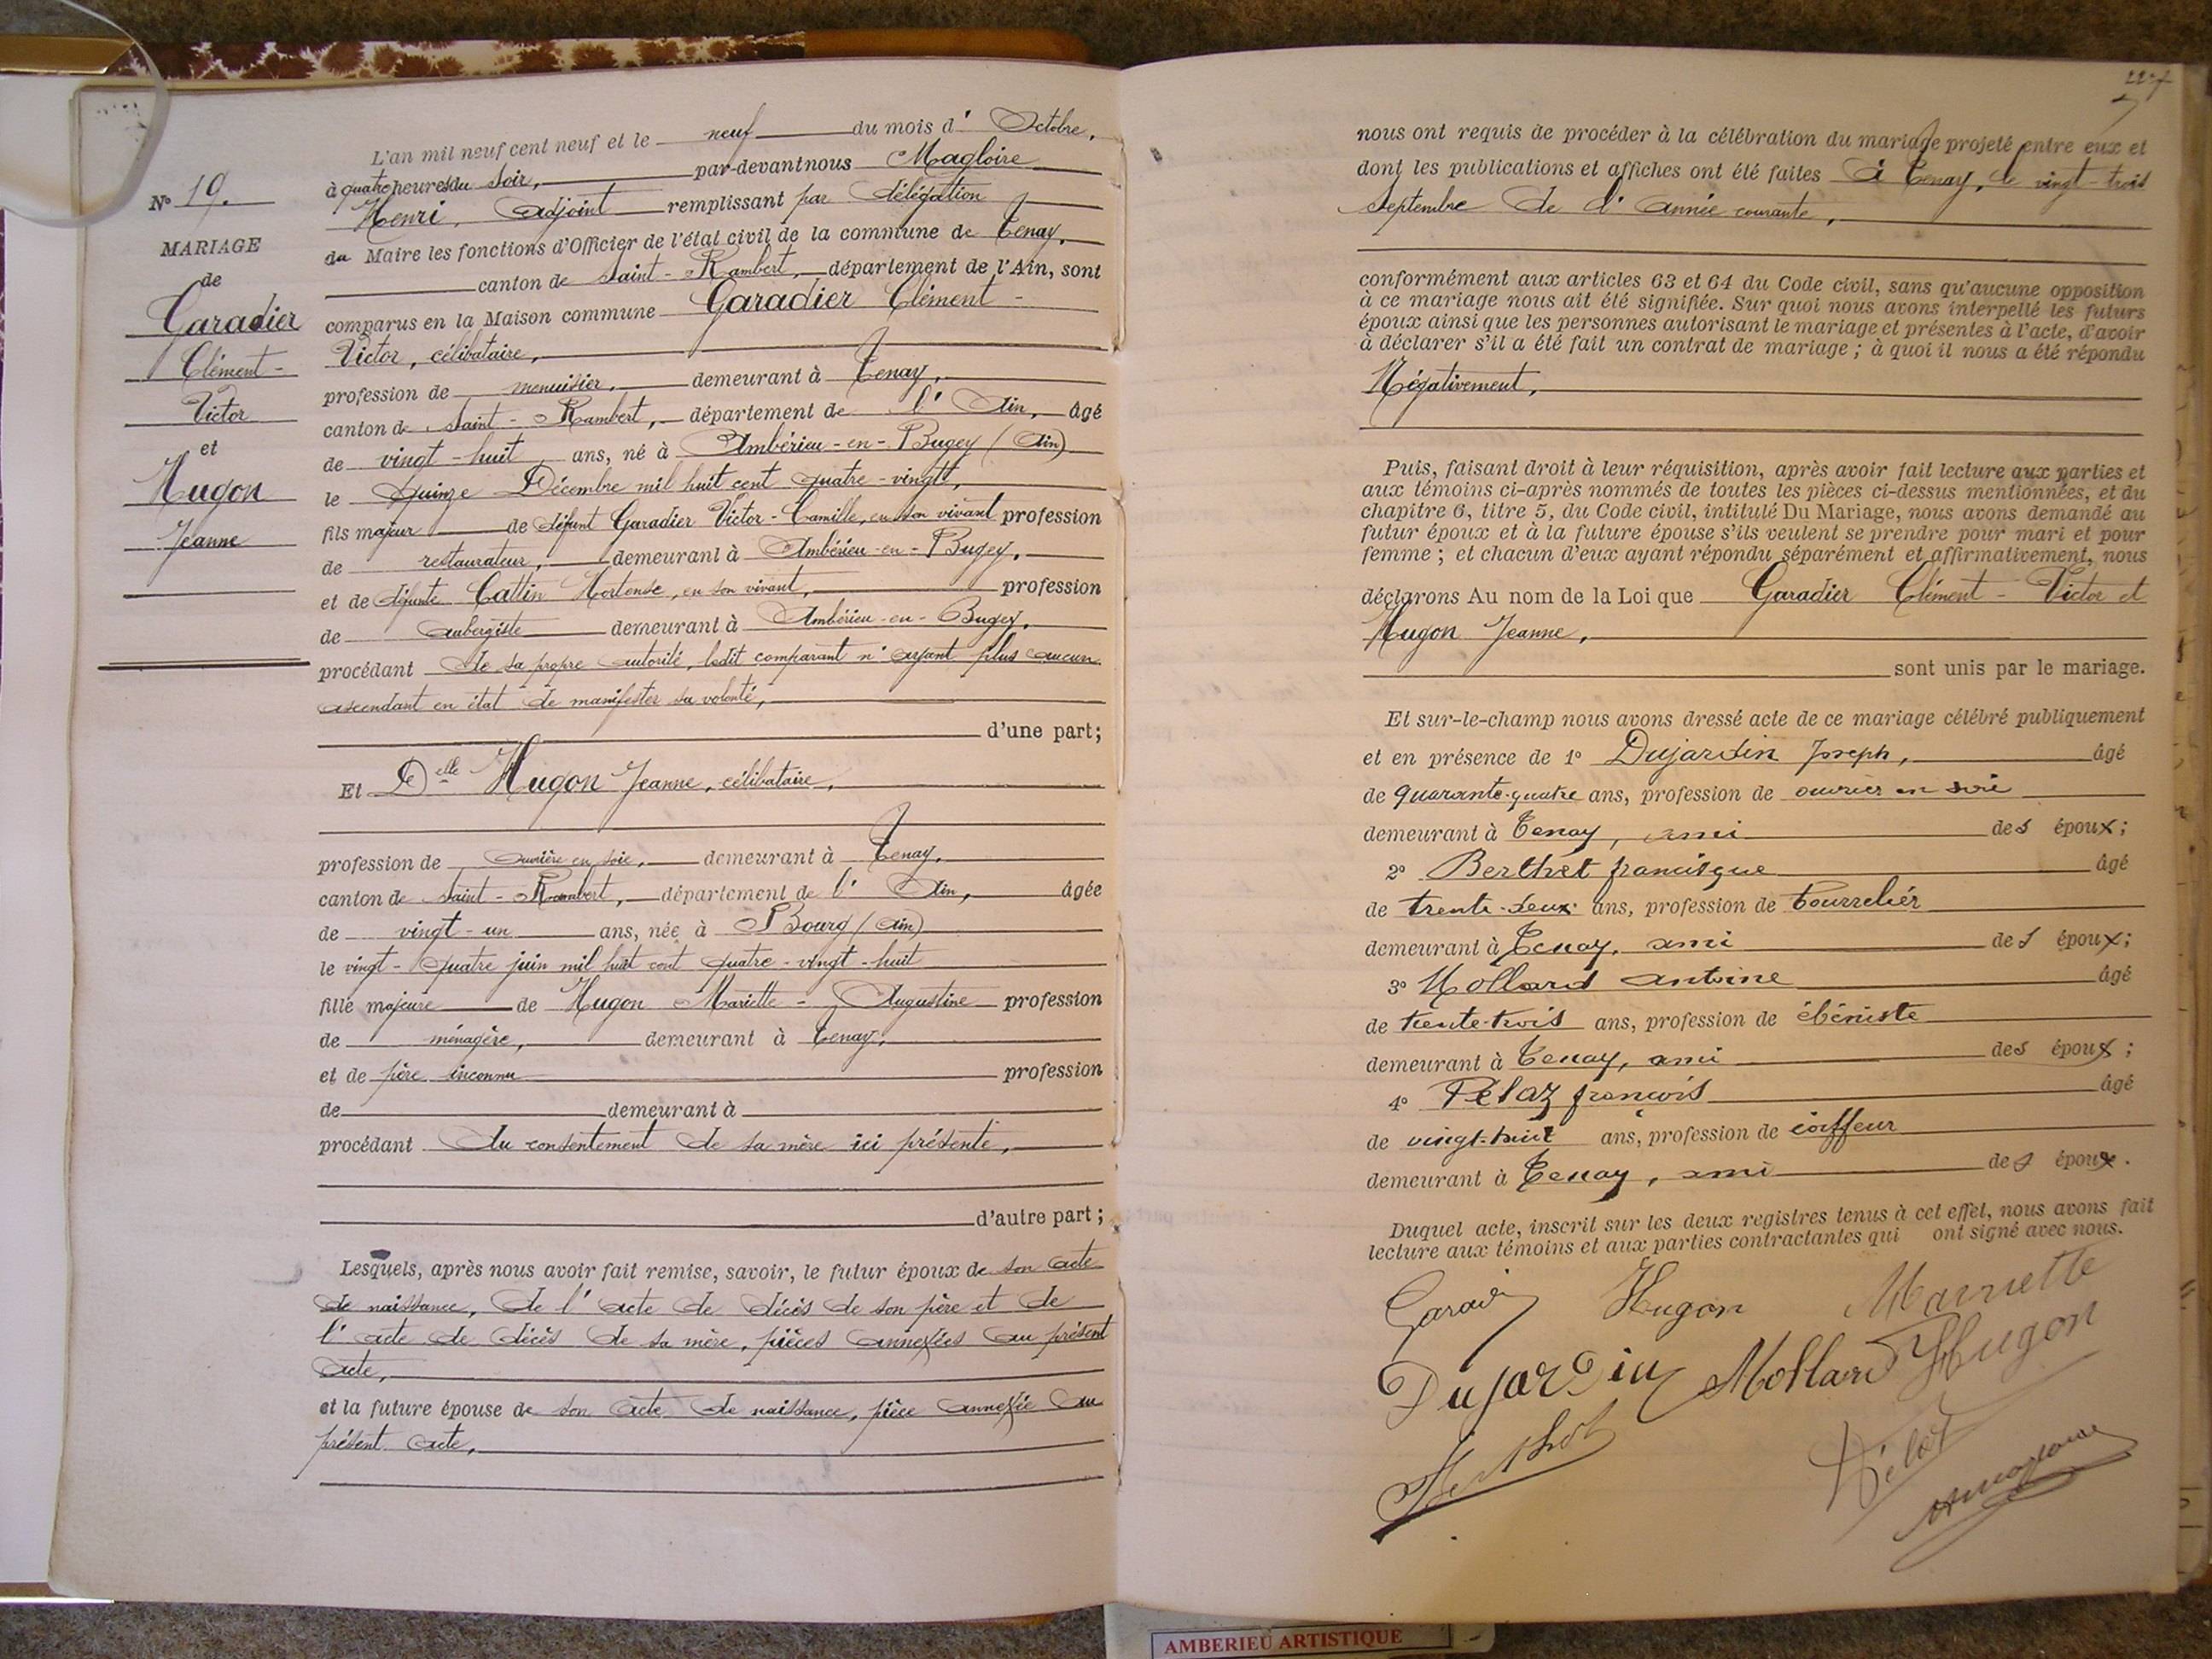 N° 19.
MARIAGE
de
Garadier
Clément-
Victor
et
Hugon
Jeanne
L'an mil neuf cent neuf et le neuf du mois d' Octobre,
à quatre heures du soir, par-devant nous Magloire
Henri, adjoint remplissant par délégation
du Maire les fonctions d'Officier de l'état civil de la commune de Tenay,
canton de Saint-Rambert, département de l'Ain, sont
comparus en la Maison commune Garadier Clément-
Victor, célibataire,
profession de menuisier, demeurant à Tenay,
canton de Saint-Rambert, département de l'Ain, âgé
de vingt-huit ans, né à Ambérieu-en-Bugey (Ain)
le quinze Décembre mil huit cent quatre-vingt,
fils majeur de défunt Garadier Victor-Camille, en son vivant profession
de restaurateur, demeurant à Ambérieu-en-Bugey,
et de défunte Cattin Hortense, en son vivant, profession
de aubergiste demeurant à Ambérieu-en-Bugey,
procédant de sa propre autorité, ledit comparant n'ayant plus aucun
ascendant en état de manifester sa volonté,
d'une part;
Et Delle Hugon Jeanne, célibataire,
profession de ouvrière en soie, demeurant à Tenay,
canton de Saint-Rambert, département de l'Ain, âgée
de vingt-un ans, née à Bourg (Ain)
le vingt-quatre juin mil huit cent quatre-vingt-huit
fille majeure de Hugon Mariette-Augustine profession
de ménagère, demeurant à Tenay,
et de père inconnu profession
de demeurant à
procédant du consentement de sa mère ici présente,
d'autre part;
Lesquels, après nous avoir fait remise, savoir, le futur époux de son acte
de naissance, de l'acte de décès de son père et de
l'acte de décès de sa mère, pièces annexées au présent
acte,
et la future épouse de son acte de naissance, pièce annexée au
présent acte,
227
nous ont requis de procéder à la célébration du mariage projeté entre eux et
dont les publications et affiches ont été faites à Tenay, le vingt-trois
Septembre de l'année courante,
conformément aux articles 63 et 64 du Code civil, sans qu'aucune opposition
à ce mariage nous ait été signifiée. Sur quoi nous avons interpellé les futurs
époux ainsi que les personnes autorisant le mariage et présentes à l'acte, d'avoir
à déclarer s'il a été fait un contrat de mariage; à quoi il nous a été répondu
Négativement,
Puis, faisant droit à leur réquisition, après avoir fait lecture aux parties et
aux témoins ci-après nommés de toutes les pièces ci-dessus mentionnées, et du
chapitre 6, titre 5, du Code civil, intitulé Du Mariage, nous avons demandé au
futur époux et à la future épouse s'ils veulent se prendre pour mari et pour
femme; et chacun d'eux ayant répondu séparément et affirmativement, nous
déclarons Au nom de la Loi que Garadier Clément-Victor et
Hugon Jeanne,
sont unis par le mariage.
Et sur-le-champ nous avons dressé acte de ce mariage célébré publiquement
et en présence de 1° Dujardin Joseph, âgé
de quarante-quatre ans, profession de ouvrier en soie
demeurant à Tenay, ami des époux;
2° Berthet francisque âgé
de trente-deux ans, profession de bourrelier
demeurant à Tenay, ami des époux;
3° Mollard antoine âgé
de trente-trois ans, profession de ébéniste
demeurant à Tenay, ami des époux;
4° Pélaz françois âgé
de vingt-huit ans, profession de coiffeur
demeurant à Tenay, ami des époux.
Duquel acte, inscrit sur les deux registres tenus à cet effet, nous avons fait
lecture aux témoins et aux parties contractantes qui ont signé avec nous.
Hugon Mariette
Dujardin Mollard Hugon
Berthet Pélaz
AMBERIEU ARTISTIQUE